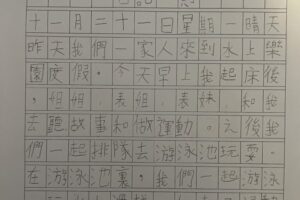 十一月二十一日星期一晴天
昨天我們一家人來到水上樂
園度假。今天早上我起床後
,姐姐,表姐,表妹,和我
去聽故事和做運動。之後我
們一起排隊去游泳池玩耍。
在游泳池裏,我們一起游泳